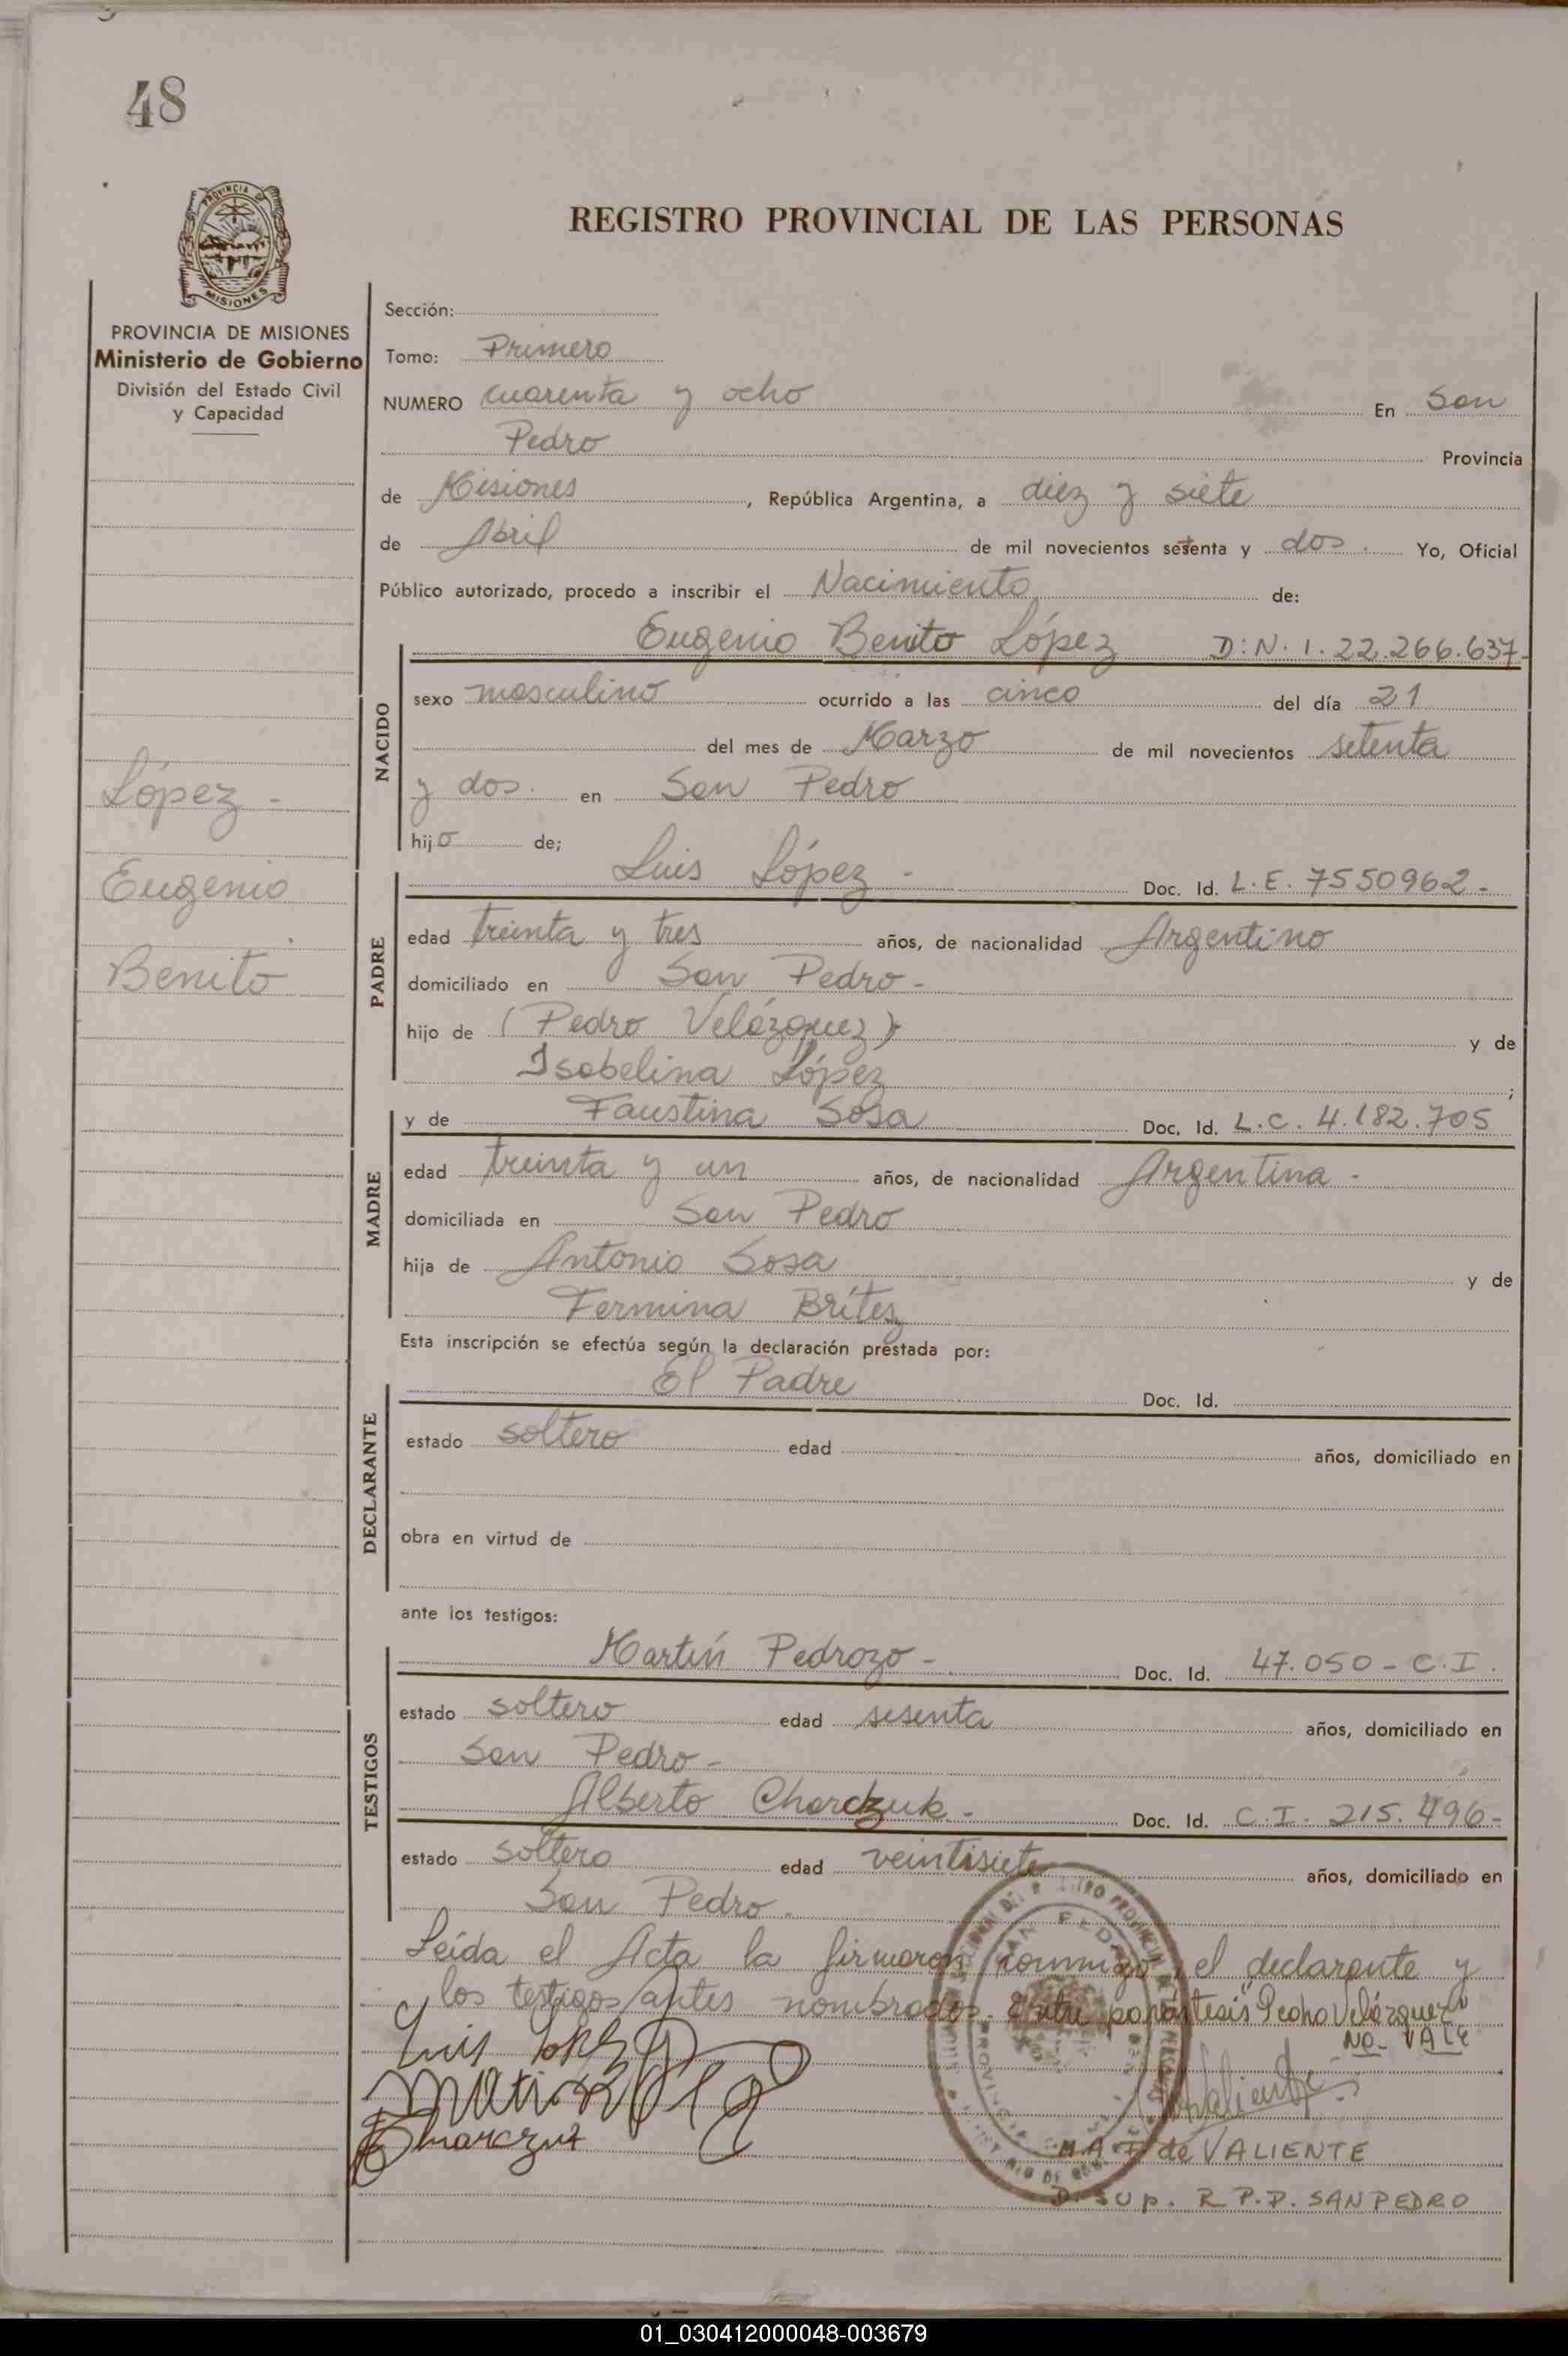 48
PROVINCIA DE
MISIONES
REGISTRO PROVINCIAL DE LAS PERSONAS
PROVINCIA DE MISIONES
Ministerio de Gobierno
División del Estado Civil
y Capacidad
López -
Eugenio
Benito
Sección:
Tomo: Primero
NUMERO cuarenta y ocho En San
Pedro Provincia
de Misiones, República Argentina, a diez y siete
de Abril de mil novecientos setenta y dos. Yo, Oficial
Público autorizado, procedo a inscribir el Nacimiento de:
Eugenio Benito López D.N.I. 22.266.637-
NACIDO
sexo masculino ocurrido a las cinco del día 21
del mes de Marzo de mil novecientos setenta
y dos. en San Pedro
hijo de;
Luis López - Doc. Id. L.E. 7550962-
PADRE
edad treinta y tres años, de nacionalidad Argentino
domiciliado en San Pedro-
hijo de (Pedro Velázquez) y de
Isabelina López ;
y de Faustina Sosa Doc. Id. L.C. 4.182.705
MADRE
edad treinta y un años, de nacionalidad Argentina -
domiciliada en San Pedro
hija de Antonio Sosa y de
Fermina Brítez
Esta inscripción se efectúa según la declaración prestada por:
El Padre Doc. Id.
DECLARANTE
estado soltero edad años, domiciliado en
obra en virtud de
ante los testigos:
Martín Pedrozo - Doc. Id. 47.050 - C.I.
TESTIGOS
estado soltero edad sesenta años, domiciliado en
San Pedro -
Alberto Charczuk - Doc. Id. C.I. 215.496-
estado soltero edad veintisiete años, domiciliado en
San Pedro.
Leída el Acta la firmaron conmigo, el declarante y
los testigos antes nombrados. Entre paréntesis "Pedro Velázquez"
NO- VALE
Luis Lopez
Charczuk
Valiente
M.A.F. de VALIENTE
D. Sup. R.P.P. SAN PEDRO
01_030412000048-003679